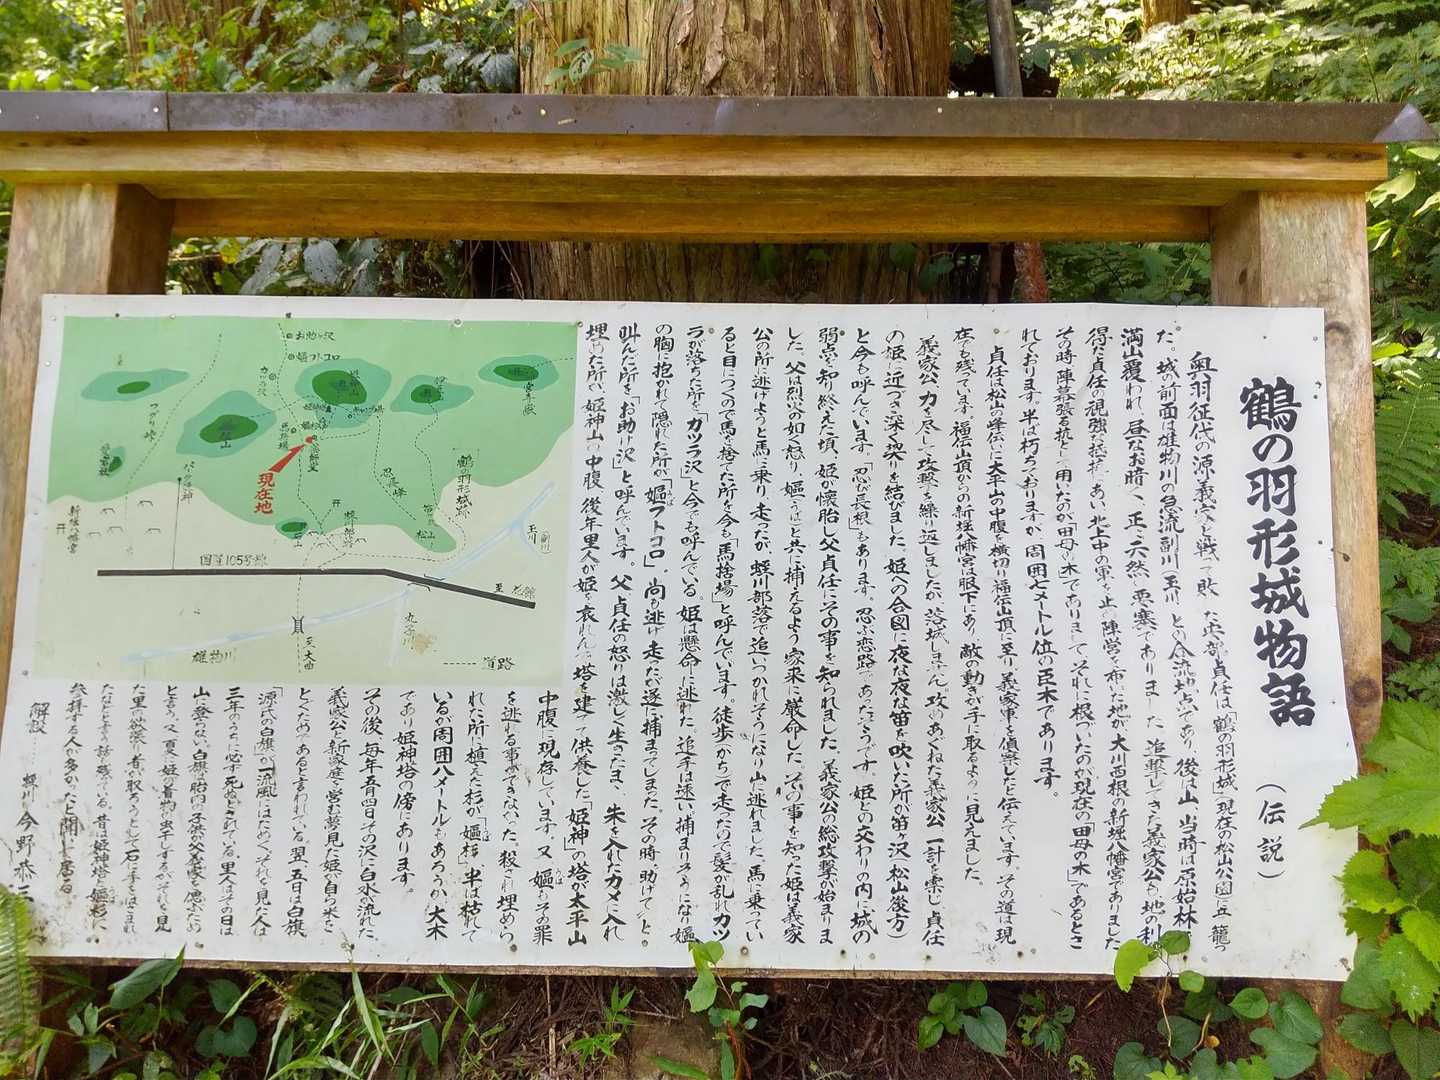 鶴の羽形城物語
(伝説)
奥羽征伐の源義家と戦って敗れた安部貞任は「鶴の羽形城」(現在の松山公園)に立て籠っ
た。城の前面は雄物川の急流副川、玉川との合流地点であり、後は山、当時は原始林
満山覆われ、昼なお暗く、正に六然の要塞でありました。追撃してきた義家公も地の利
得た貞任の視強な抵抗にあい、北上中の軍を止め陣営を布いた地が大川西根の新堀八幡宮でありました
その時、陣幕張る杭として用いたのが「田母の木」でありまして、それに根づいたのが現在の「田母の木」であるとさ
れております。半ば朽ちておりますが、周囲七メートル位の臣木であります。
貞任は松山の峰伝いに大平山の中腹を横切り福伝山頂に至り、義家軍を偵察したと伝えています。その道は現
在でも残てます。福伝山頂からの新堀八幡宮は眼下にあり、敵の動きが手に取るように見えました。
義家公、力を尽して攻撃を繰り返しましたが落城しません。攻めあぐねた義家公、一計を案じ、貞任
の姫に近づき深く契りを結びました。姫への合図に夜な夜な笛を吹いた所が笛ヶ沢(松山後方)
と今も呼んでいます。「忍び長根」もあります。忍ぶ恋路であったそうです。姫との交わりの内に城の
弱点を知り終えた頃、姫が懐胎し父貞任にその事を知られました。義家公の総攻撃が始まりま
した。父は烈火の如く怒り、嫗(うば)と共に捕えるよう家来に厳命した。その事を知った姫は義家
公の所に逃げようと馬に乗り、走ったが、蛭川部落で追いつかれそうになり山に逃れました。馬に乗ってい
ると目につくので馬を捨てた所を今も「馬捨場」と呼んでいます。徒歩(かち)で走ったので髪が乱れカツ
ラが落ちた所を「カツラ沢」と今でも呼んでいる。姫は懸命に逃れた。追手は速い捕まりそうになり嫗
の胸に抱かれて隠れた所が「嫗フトコロ」。尚も逃げ走ったが遂に捕まってしまった。その時助けてと
叫んだ所を「お助け沢」と呼んでいます。父貞任の怒りは激しく生きたまゝ朱を入れたカメに入れ
埋めた所が姫神山の中腹、後年里人が姫を哀れんで塔を建って供養した「姫神」の塔が太平山
中腹に現存しています。又、嫗もその罪
を逃れる事ができなかった。殺され埋めら
れた所に植えた杉が「嫗杉」半ば枯れて
いるが周囲八メートルもあろうか大木
であり姫神塔の傍にあります。
その後、毎年五月四日その沢に白水が流れた
義家公と新家庭を営む夢見た姫が自ら米を
とぐためであると言われている。翌、五日は白旗
「源氏の白旗」が一流風にはためくそれを見た人は
三年のうちに必ず死ぬとされている。里人はその日は
山に登らない。白旗は胎内の子供の父義家を偲ぶため
と言う。又、夏に姫の着物の虫干しするが、それを見
た里の欲深い者が取ろうとして石に手をはさまれ
たなどと言う話が残ている。昔は姫神塔や嫗杉に
参拝する人が多かったと聞いて居る。
解説……蛭川 今野恭三
お助ヶ沢
嫗フトコロ
カツラ沢
馬捨場
薬師堂
現在地
忍長峰
鶴の羽形城跡
笛ヶ沢
松山
蛭川部落
愛宕社
新堀八幡宮
国道105号線
至花館
至大曲
雄物川
玉川
副川
……道路